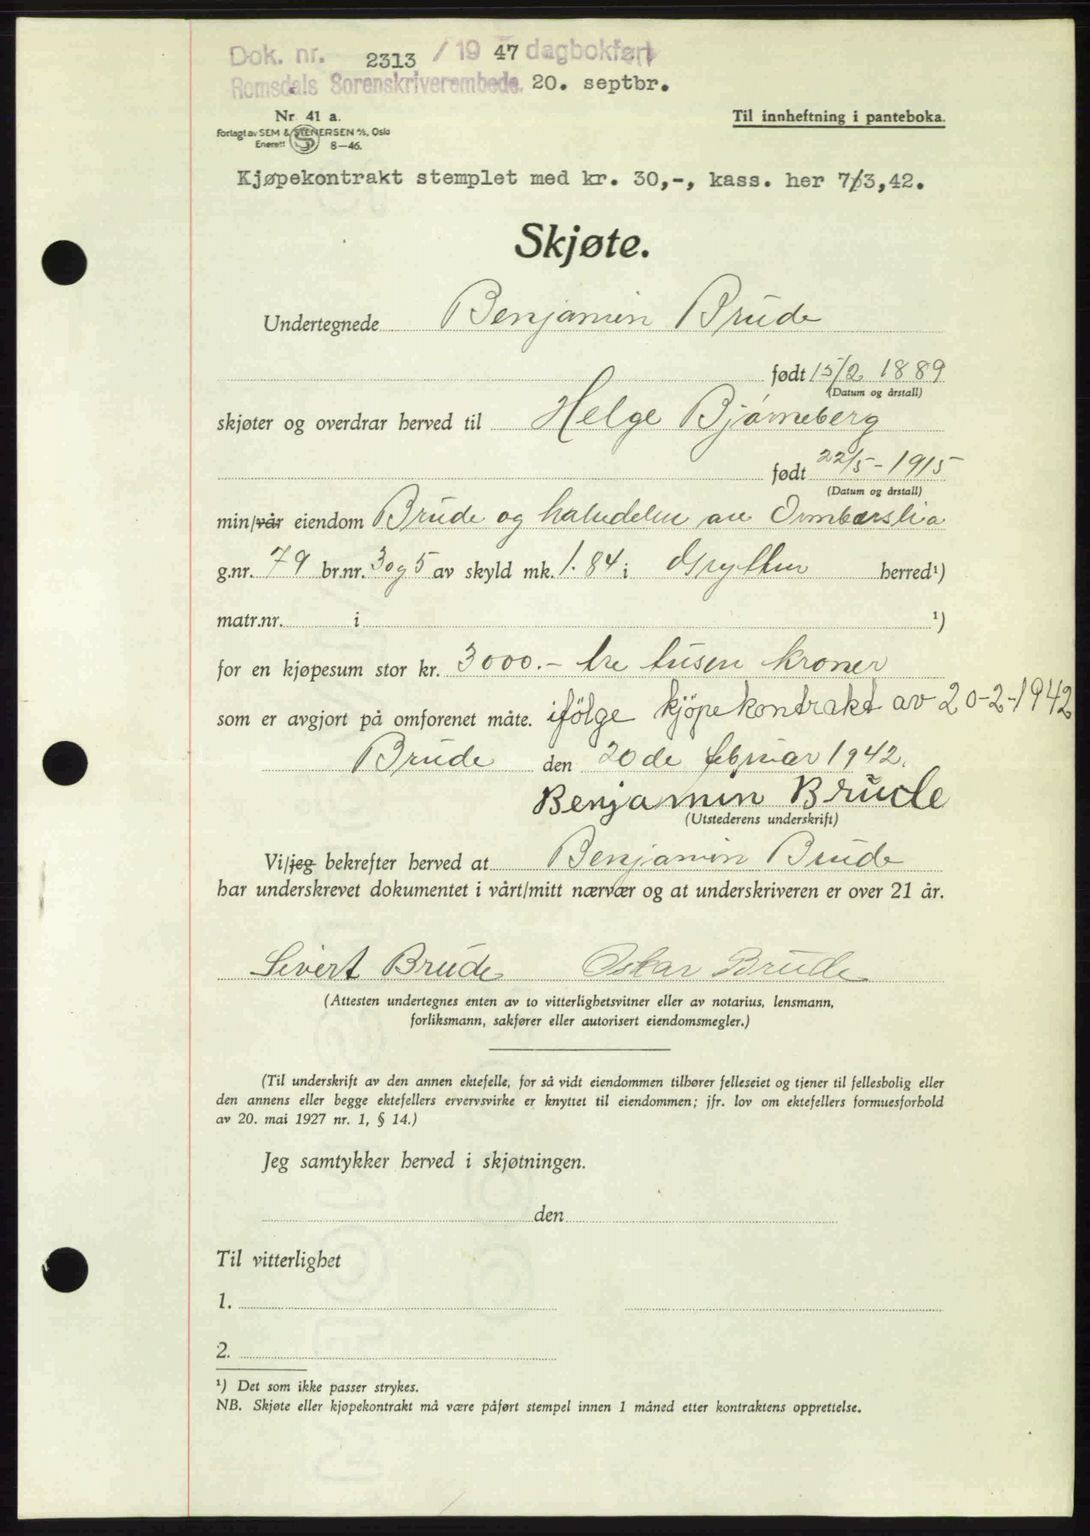 Dok. nr. 2313 / 19 47 dagbokført
Romsdals Sorenskriverembede. 20. septbr.
Nr. 41 a.
Forlagt av SEM & STENERSEN A/S, Oslo
Enerett 8—46.
Til innheftning i panteboka.
Kjøpekontrakt stemplet med kr. 30,-, kass. her 7/3,42.
Skjøte.
Undertegnede Benjamin Brude
født 15/2 1889
(Datum og årstall)
skjøter og overdrar herved til Helge Bjørneberg
født 22/5 - 1915
(Datum og årstall)
min/vår eiendom Brude og halvdelen av Ormbærslia
g.nr. 79 br.nr. 3 og 5 av skyld mk. 1.84 i Grytten herred¹)
matr.nr. i ¹)
for en kjøpesum stor kr. 3000.- tre tusen kroner
som er avgjort på omforenet måte. ifölge kjöpekontrakt av 20-2-1942
Brude den 20de februar 1942.
Benjamin Brude
(Utstederens underskrift)
Vi/jeg bekrefter herved at Benjamin Brude
har underskrevet dokumentet i vårt/mitt nærvær og at underskriveren er over 21 år.
Sivert Brude Oskar Brude
(Attesten undertegnes enten av to vitterlighetsvitner eller av notarius, lensmann,
forliksmann, sakfører eller autorisert eiendomsmegler.)
(Til underskrift av den annen ektefelle, for så vidt eiendommen tilhører felleseiet og tjener til fellesbolig eller
den annens eller begge ektefellers ervervsvirke er knyttet til eiendommen; jfr. lov om ektefellers formuesforhold
av 20. mai 1927 nr. 1, § 14.)
Jeg samtykker herved i skjøtningen.
den
Til vitterlighet
1.
2.
¹) Det som ikke passer strykes.
NB. Skjøte eller kjøpekontrakt må være påført stempel innen 1 måned etter kontraktens opprettelse.